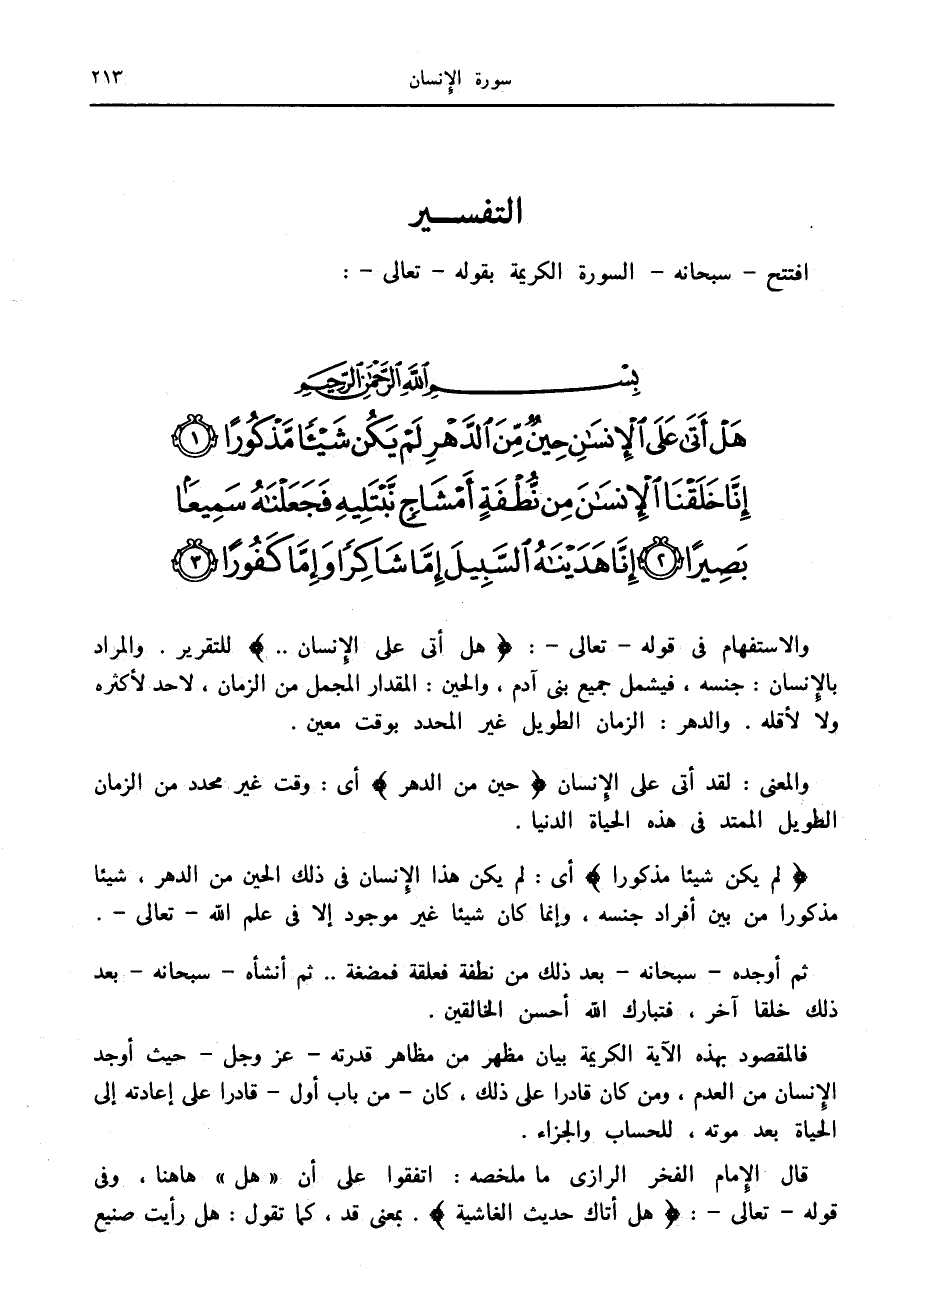 سورة الإنسان ٢١٣
التفسير
افتتح - سبحانه - السورة الكريمة بقوله - تعالى - :
بِسْمِ ٱللَّهِ ٱلرَّحْمَٰنِ ٱلرَّحِيمِ
هَلْ أَتَىٰ عَلَى ٱلْإِنسَٰنِ حِينٌ مِّنَ ٱلدَّهْرِ لَمْ يَكُن شَيْـًٔا مَّذْكُورًا ١
إِنَّا خَلَقْنَا ٱلْإِنسَٰنَ مِن نُّطْفَةٍ أَمْشَاجٍ نَّبْتَلِيهِ فَجَعَلْنَٰهُ سَمِيعًۢا
بَصِيرًا ٢ إِنَّا هَدَيْنَٰهُ ٱلسَّبِيلَ إِمَّا شَاكِرًا وَإِمَّا كَفُورًا ٣
والاستفهام فى قوله - تعالى - : ﴿ هل أتى على الإنسان .. ﴾ للتقرير . والمراد
بالإنسان : جنسه ، فيشمل جميع بنى آدم ، والحين : المقدار المجمل من الزمان ، لاحد لأكثره
ولا لأقله . والدهر : الزمان الطويل غير المحدد بوقت معين .
والمعنى : لقد أتى على الإنسان ﴿ حين من الدهر ﴾ أى : وقت غير محدد من الزمان
الطويل الممتد فى هذه الحياة الدنيا .
﴿ لم يكن شيئا مذكورا ﴾ أى : لم يكن هذا الإنسان فى ذلك الحين من الدهر ، شيئا
مذكورا من بين أفراد جنسه ، وإنما كان شيئا غير موجود إلا فى علم الله - تعالى - .
ثم أوجده - سبحانه - بعد ذلك من نطفة فعلقة فمضغة .. ثم أنشأه - سبحانه - بعد
ذلك خلقا آخر ، فتبارك الله أحسن الخالقين .
فالمقصود بهذه الآية الكريمة بيان مظهر من مظاهر قدرته - عز وجل - حيث أوجد
الإنسان من العدم ، ومن كان قادرا على ذلك ، كان - من باب أول - قادرا على إعادته إلى
الحياة بعد موته ، للحساب والجزاء .
قال الإمام الفخر الرازى ما ملخصه : اتفقوا على أن « هل » هاهنا ، وفى
قوله - تعالى - : ﴿ هل أتاك حديث الغاشية ﴾ . بمعنى قد ، كما تقول : هل رأيت صنيع